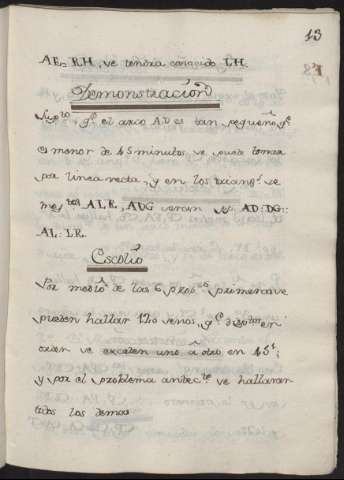 13
AE, RH, se tendra conocido LH.
Demonstración
Supto q.e el arco AD es tan pequeño q.e
es menor de 45 minutos se puede tomar
por linea recta, y en los triang.s se
mejtes ALR, ADG seran AD: DG::
AL: LR.
Escolio
Por medio de las 6 prop.es primeras se
pueden hallar 120 senos, q.e en
orden se exceden uno a otro en 45';
y por el problema antec.te se hallaran
todos los demas